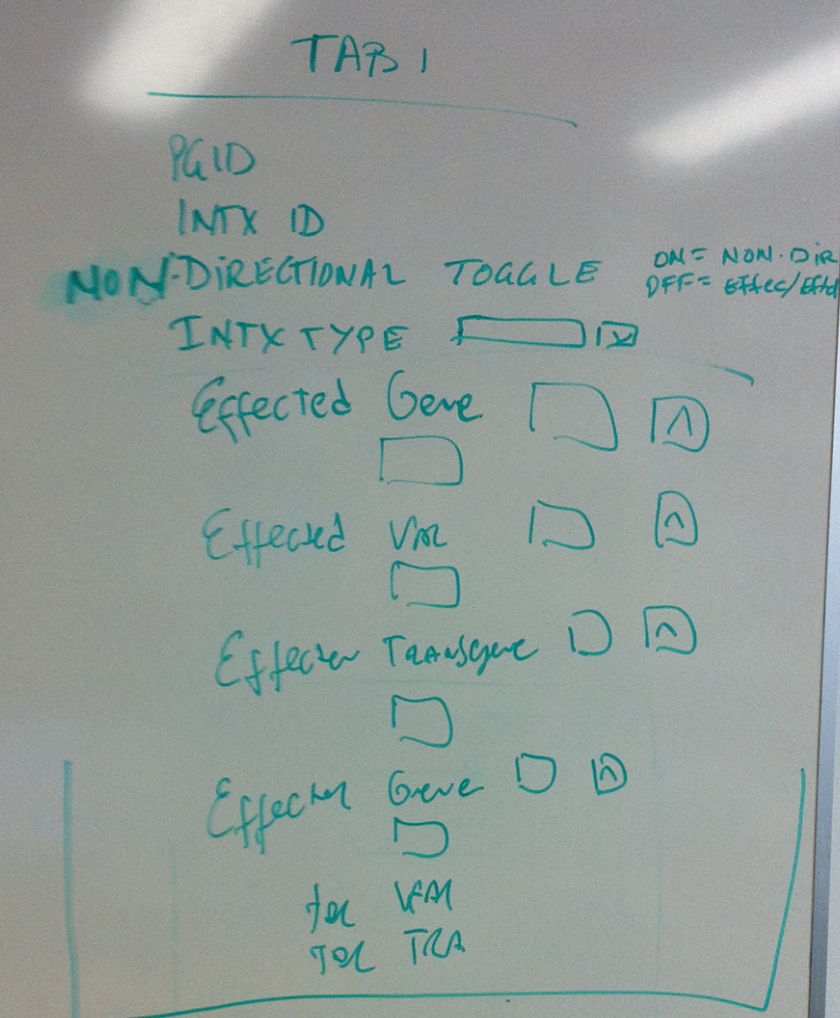 TAB 1
PGID
INTX ID
NON-DIRECTIONAL TOGGLE ON = NON-DIR
OFF = Effec/Effd
INTX TYPE
Effected Gene
Effected VAR
Effector TRANSgene
Effector Gene
VAR
TRA